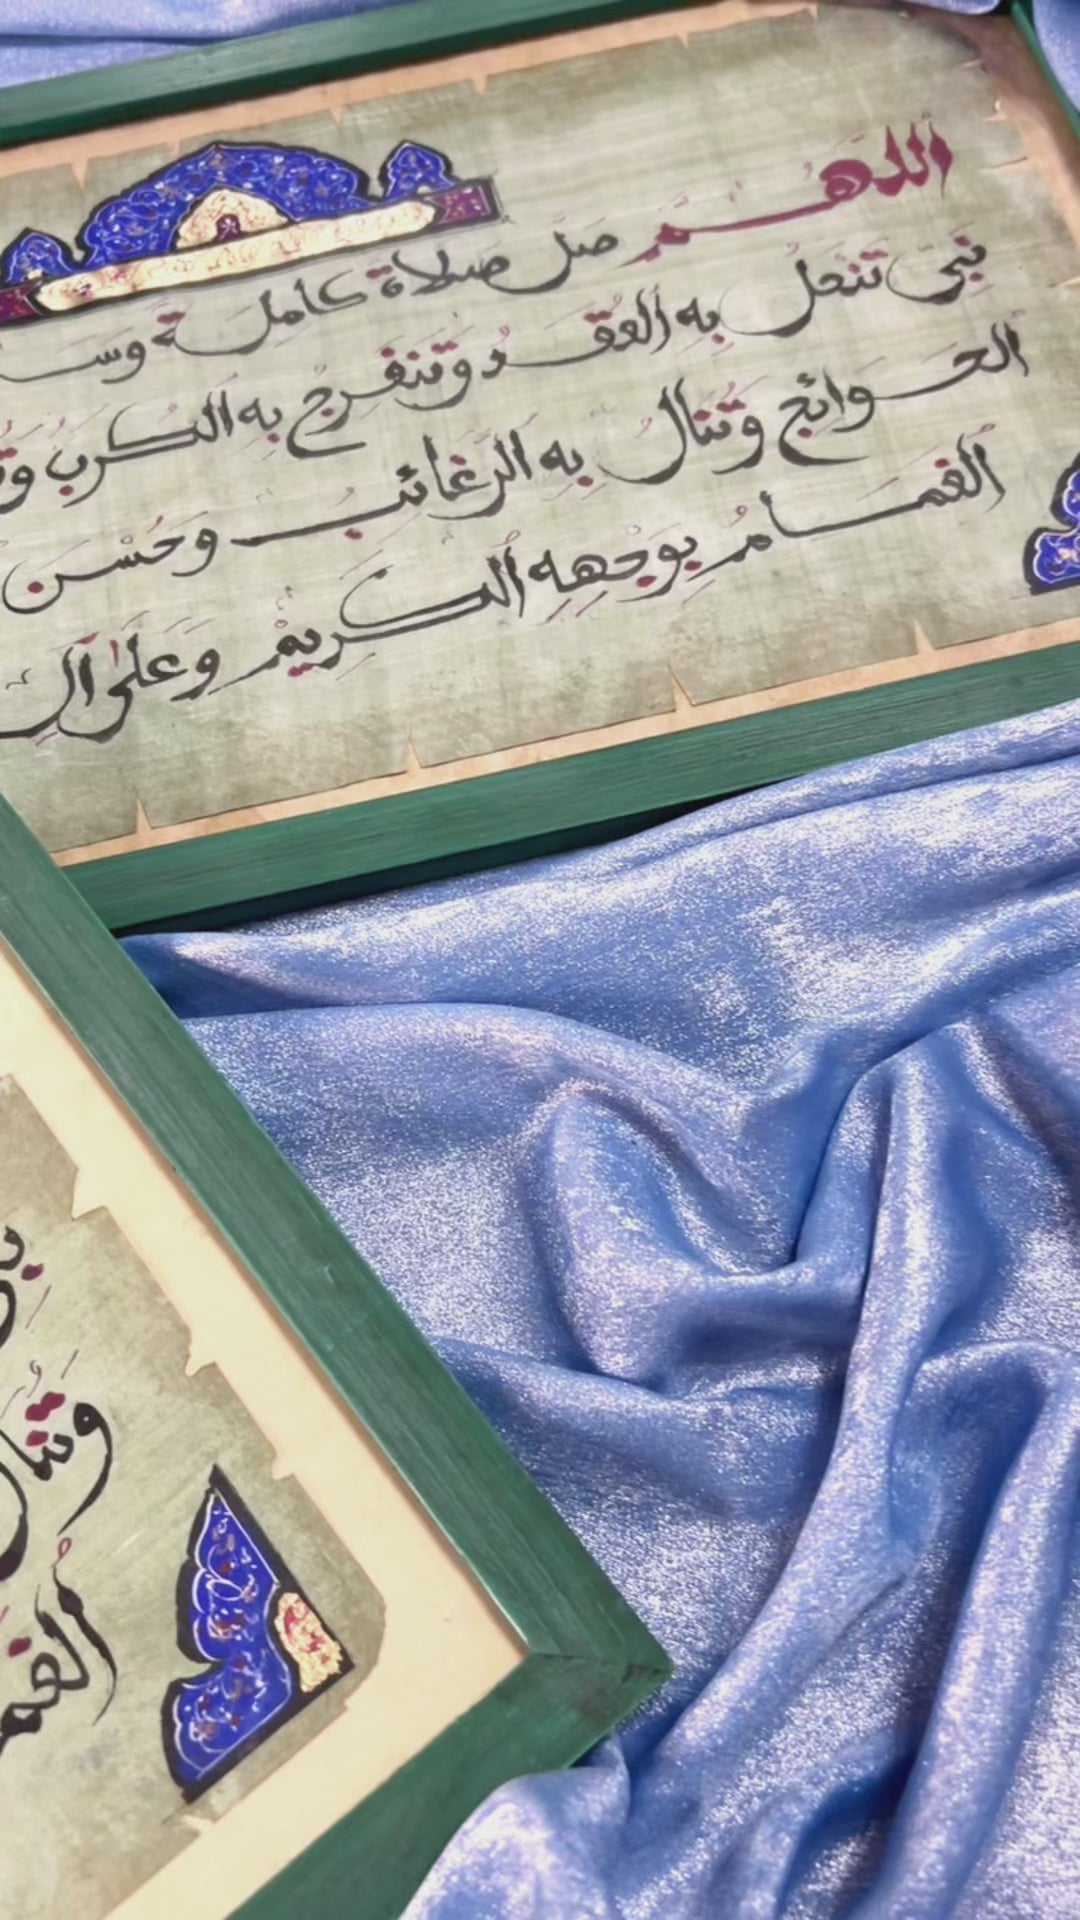 اَللّٰهُمَّ
صَلِّ صَلَاةً كَامِلَةً وَسَ
نَبِيٍّ تَنْحَلُّ بِهِ الْعُقَدُ وَتَنْفَرِجُ بِهِ الْكُرَبُ وَتُ
الْحَوَائِجُ وَتُنَالُ بِهِ الرَّغَائِبُ وَحُسْنُ
الْغَمَامُ بِوَجْهِهِ الْكَرِيمِ وَعَلَىٰ آلِ
وَتُنَالُ